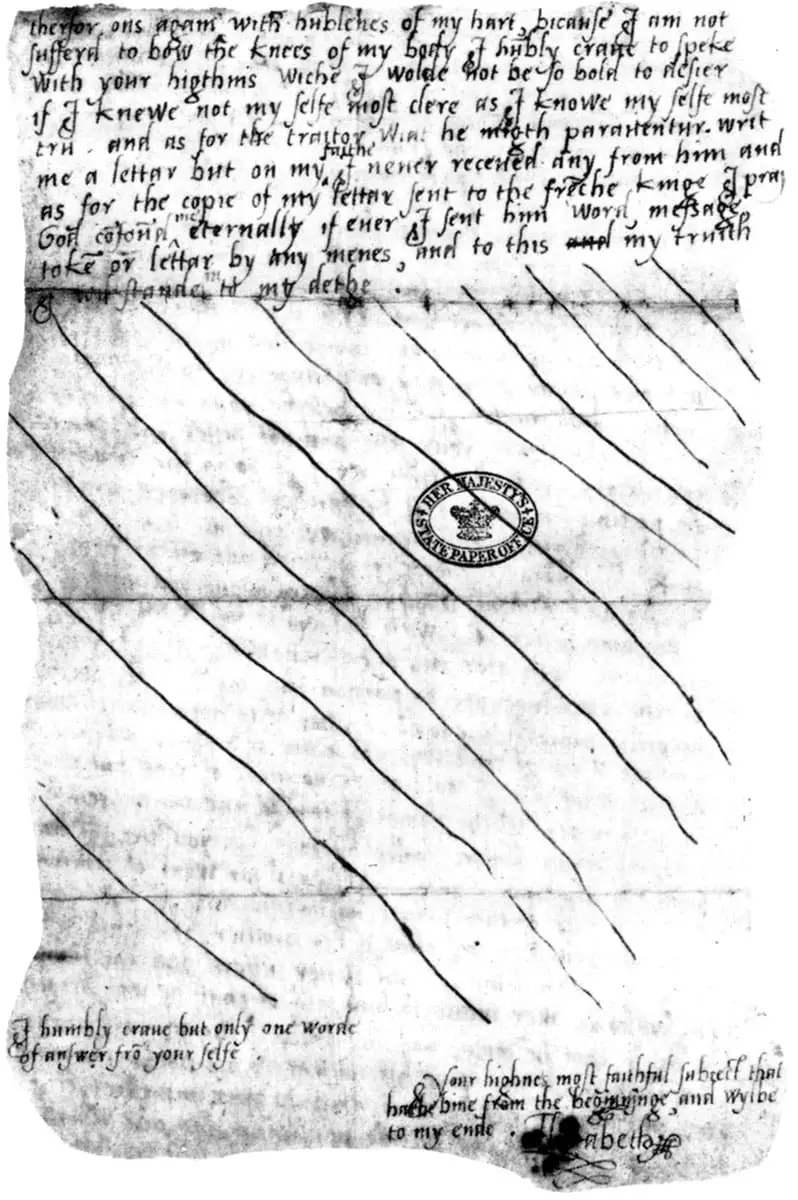 therfor ons again with hũblenes of my hart, bicause I am not
sufferd to bow the knees of my body I hũbly craue to speke
with your higthnis wiche I wolde not be so bold to desier
if I knewe not my selfe most clere as I knowe my selfe most
tru. and as for the traitor Wiat he migth parauentur writ
me a lettar but on my faithe I neuer receued any from him and
as for the copie of my lettar sent to the frẽche kinge I pray
God cõfoũd me eternally if euer I sent him word, message,
tokẽ or lettar by any menes, and to this and my truith
I wil stande in to my dethe.
HER MAJESTY'S STATE PAPER OFFICE
I humbly craue but only one worde
of answer frõ your selfe.
Your highnes most faithful subiect that
hathe bine from the beginninge, and wylbe
to my ende. Elizabeth